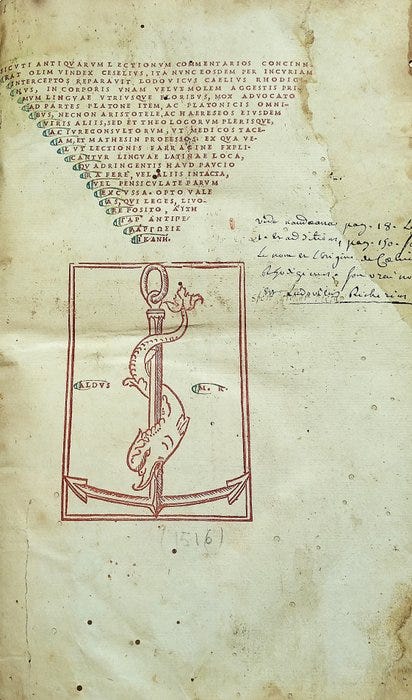 SICVTI ANTIQVARVM LECTIONVM COMMENTARIOS CONCINN
RAT OLIM VINDEX CESELIVS, ITA NVNC EOSDEM PER INCVRIAM
INTERCEPTOS REPARAVIT LODOVICVS CAELIVS RHODIG
NVS, IN CORPORIS VNAM VELVT MOLEM AGGESTIS PRI-
MVM LINGVAE VTRIVSQVE FLORIBVS, MOX ADVOCATO
AD PARTES PLATONE ITEM, AC PLATONICIS OMNI-
BVS, NECNON ARISTOTELE, AC HAERESEOS EIVSDEM
VIRIS ALIIS, SED ET THEOLOGORVM PLERISQVE,
AC IVRECONSVLTORVM, VT MEDICOS TACE-
AM, ET MATHESIN PROFESSOS. EX QVA VE-
LVT LECTIONIS FARRAGINE EXPLI-
CANTVR LINGVAE LATINAE LOCA,
QVADRINGENTIS HAVD PAVCIO
RA FERE, VEL ALIIS INTACTA,
VEL PENSICVLATE PARVM
EXCVSSA. OPTO VALE
AS, QVI LEGES, LIVO-
RE POSITO, ΑΥΤΗ
ΓΑΡ ΑΝΤΙΠΕ/
ΛΑΡΓΩΣΙΣ
ΙΚΑΝΗ.
vide naudæana pag. 18.
et additions pag. 150.
Le nom et l'origine de
Rhodiginus
Ludovicus Richerius
ALDVS M. R.
(1516)